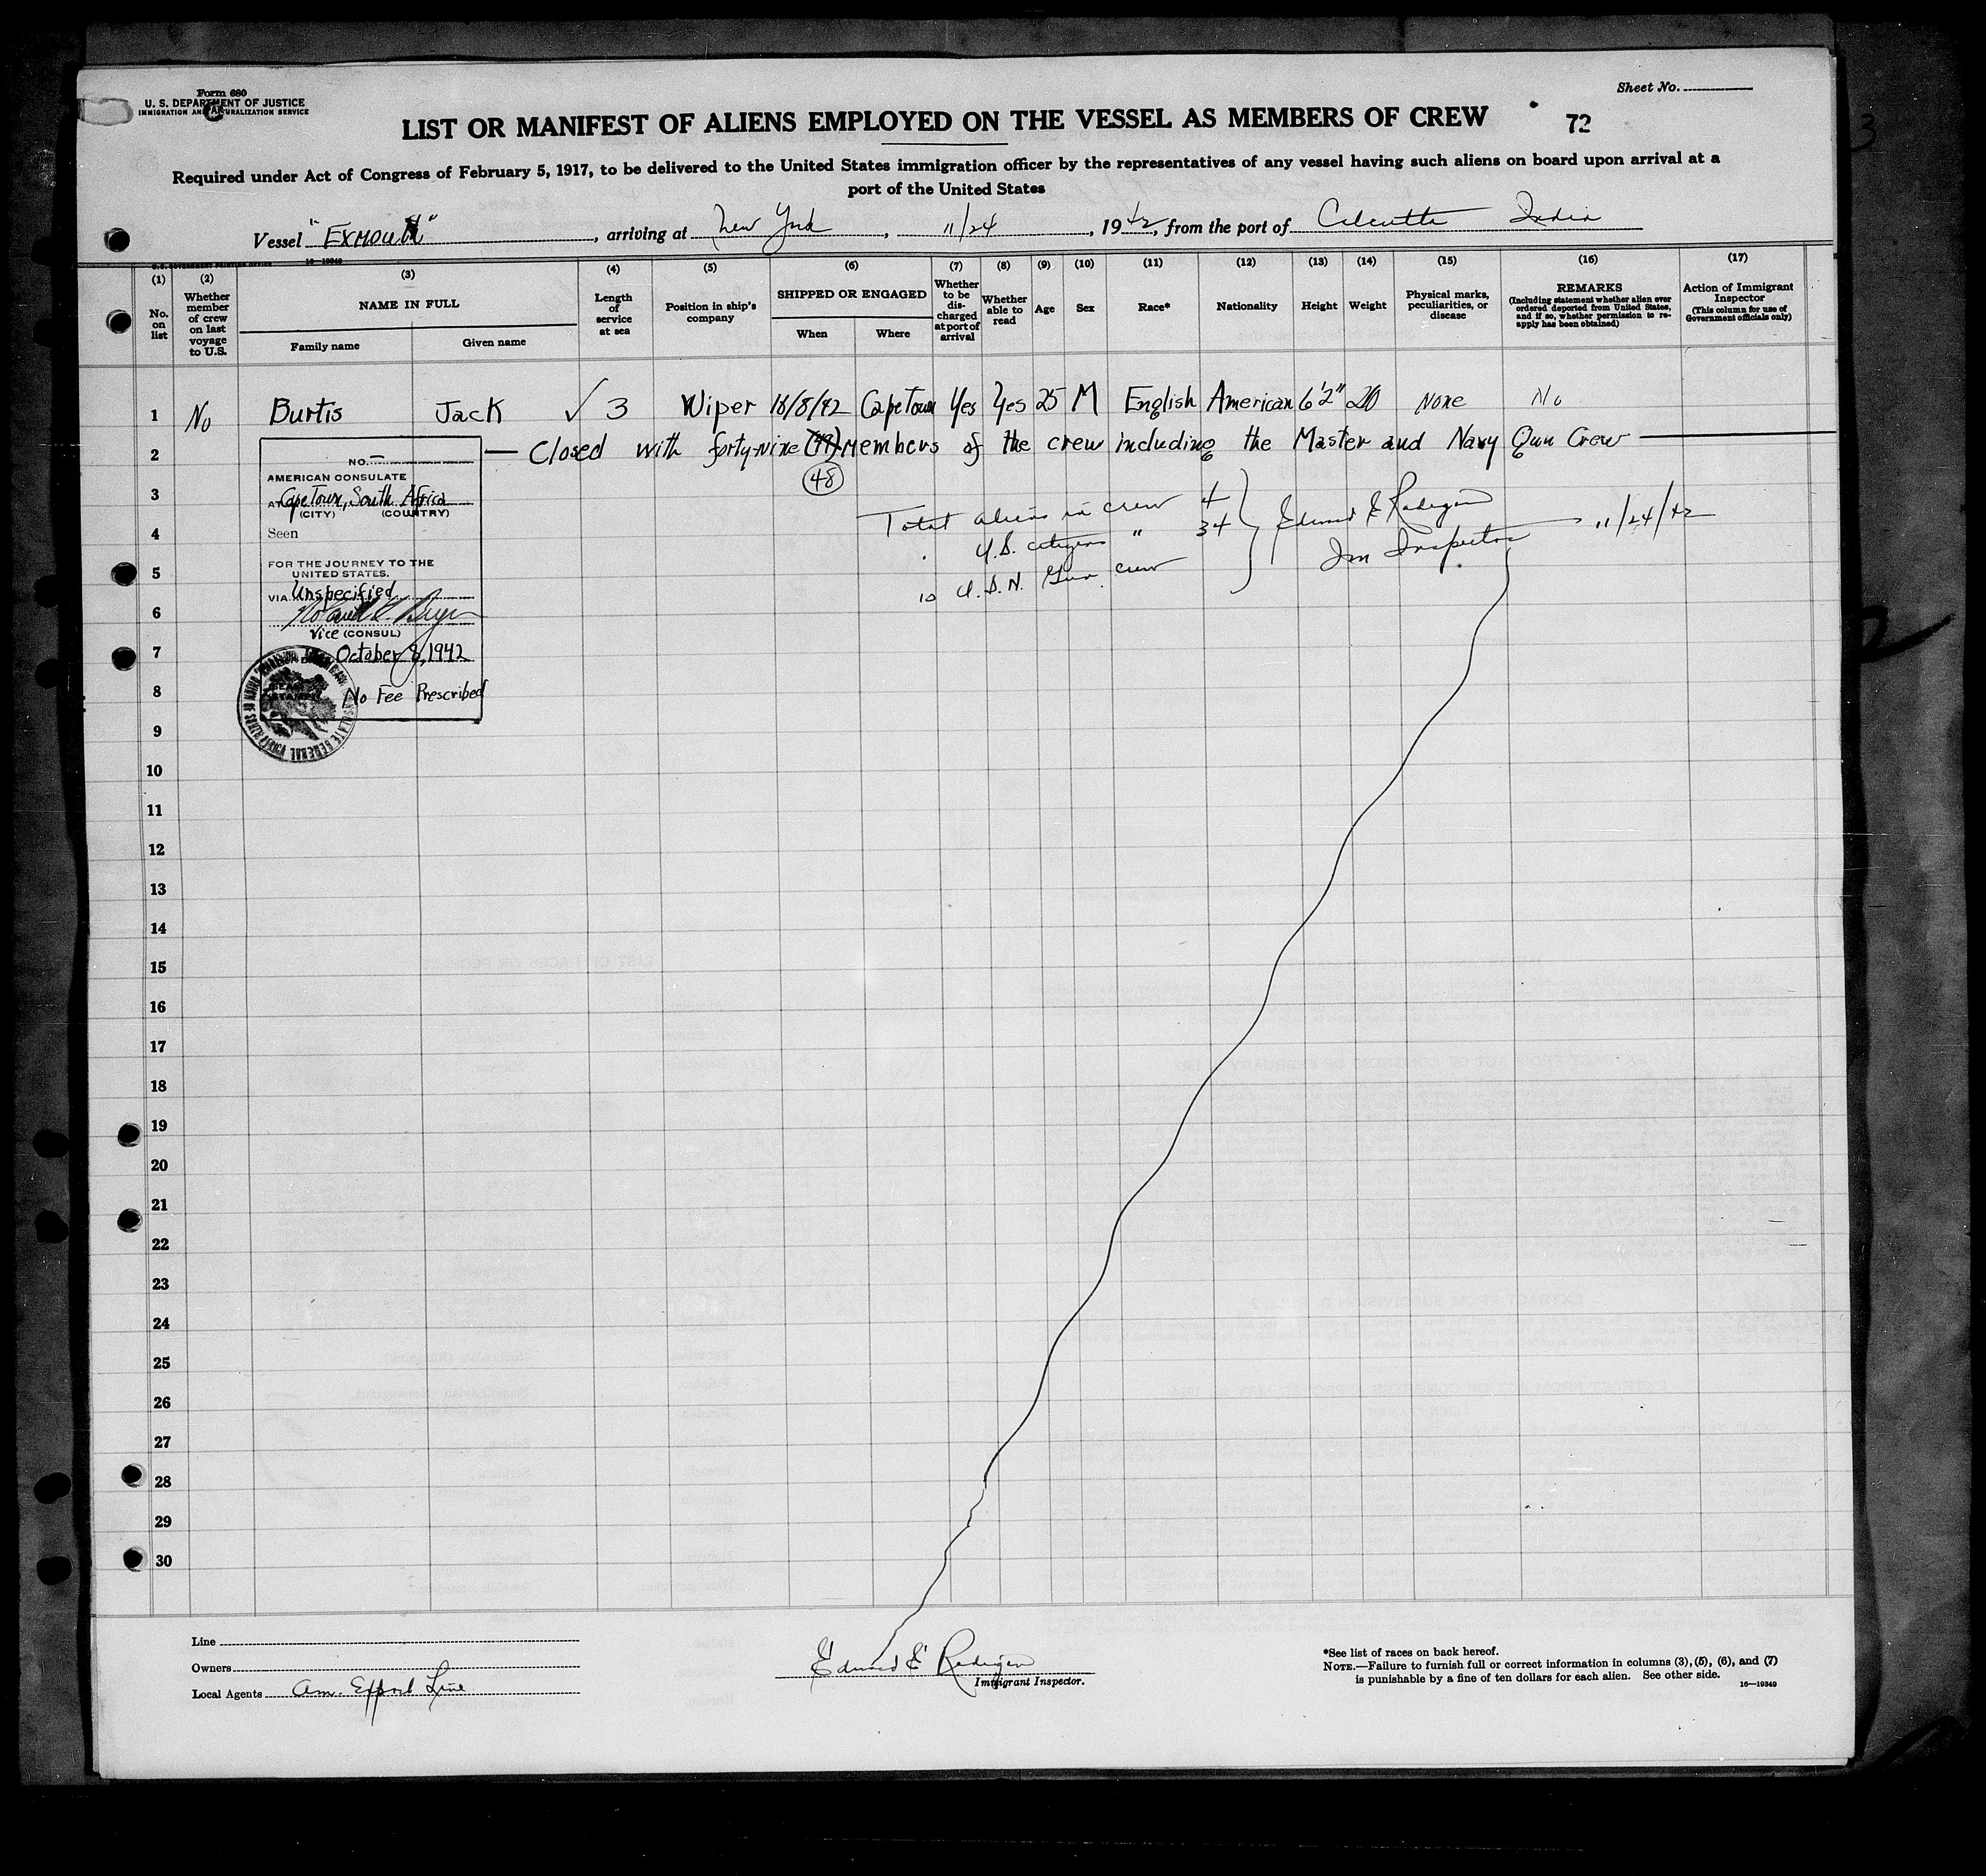 Form 680
U. S. DEPARTMENT OF JUSTICE
IMMIGRATION AND NATURALIZATION SERVICE
Sheet No.
LIST OR MANIFEST OF ALIENS EMPLOYED ON THE VESSEL AS MEMBERS OF CREW
72
Required under Act of Congress of February 5, 1917, to be delivered to the United States immigration officer by the representatives of any vessel having such aliens on board upon arrival at a
port of the United States
Vessel "EXMOUTH", arriving at New York, 11/24, 1942, from the port of Calcutta India
U.S. GOVERNMENT PRINTING OFFICE 16—19349
(1) No. on list
(2) Whether member of crew on last voyage to U.S.
(3) NAME IN FULL
Family name Given name
(4) Length of service at sea
(5) Position in ship's company
(6) SHIPPED OR ENGAGED
When Where
(7) Whether to be discharged at port of arrival
(8) Whether able to read
(9) Age
(10) Sex
(11) Race*
(12) Nationality
(13) Height
(14) Weight
(15) Physical marks, peculiarities, or disease
(16) REMARKS
(Including statement whether alien ever ordered deported from United States, and if so, whether permission to reapply has been obtained)
(17) Action of Immigrant Inspector
(This column for use of Government officials only)
1 No Burtis Jack ✓ 3 Wiper 10/8/42 CapeTown Yes Yes 25 M English American 6'2" None No
2 — Closed with forty-nine (49) members of the crew including the Master and Navy Gun Crew —
(48)
3 Total aliens in crew 4
4 " U.S. citizens " 34
5 10 U.S.N. Gun crew
Edward E Radigan
Imm Inspector 11/24/42
NO. —
AMERICAN CONSULATE
AT CapeTown, South Africa
(CITY) (COUNTRY)
Seen
FOR THE JOURNEY TO THE
UNITED STATES.
VIA Unspecified
Vice (CONSUL)
October 8, 1942
No Fee Prescribed
6
7
8
9
10
11
12
13
14
15
16
17
18
19
20
21
22
23
24
25
26
27
28
29
30
Line
Owners
Local Agents Am. Export Line
Edward E Radigan
Immigrant Inspector.
*See list of races on back hereof.
NOTE.—Failure to furnish full or correct information in columns (3), (5), (6), and (7)
is punishable by a fine of ten dollars for each alien. See other side.
16—19349